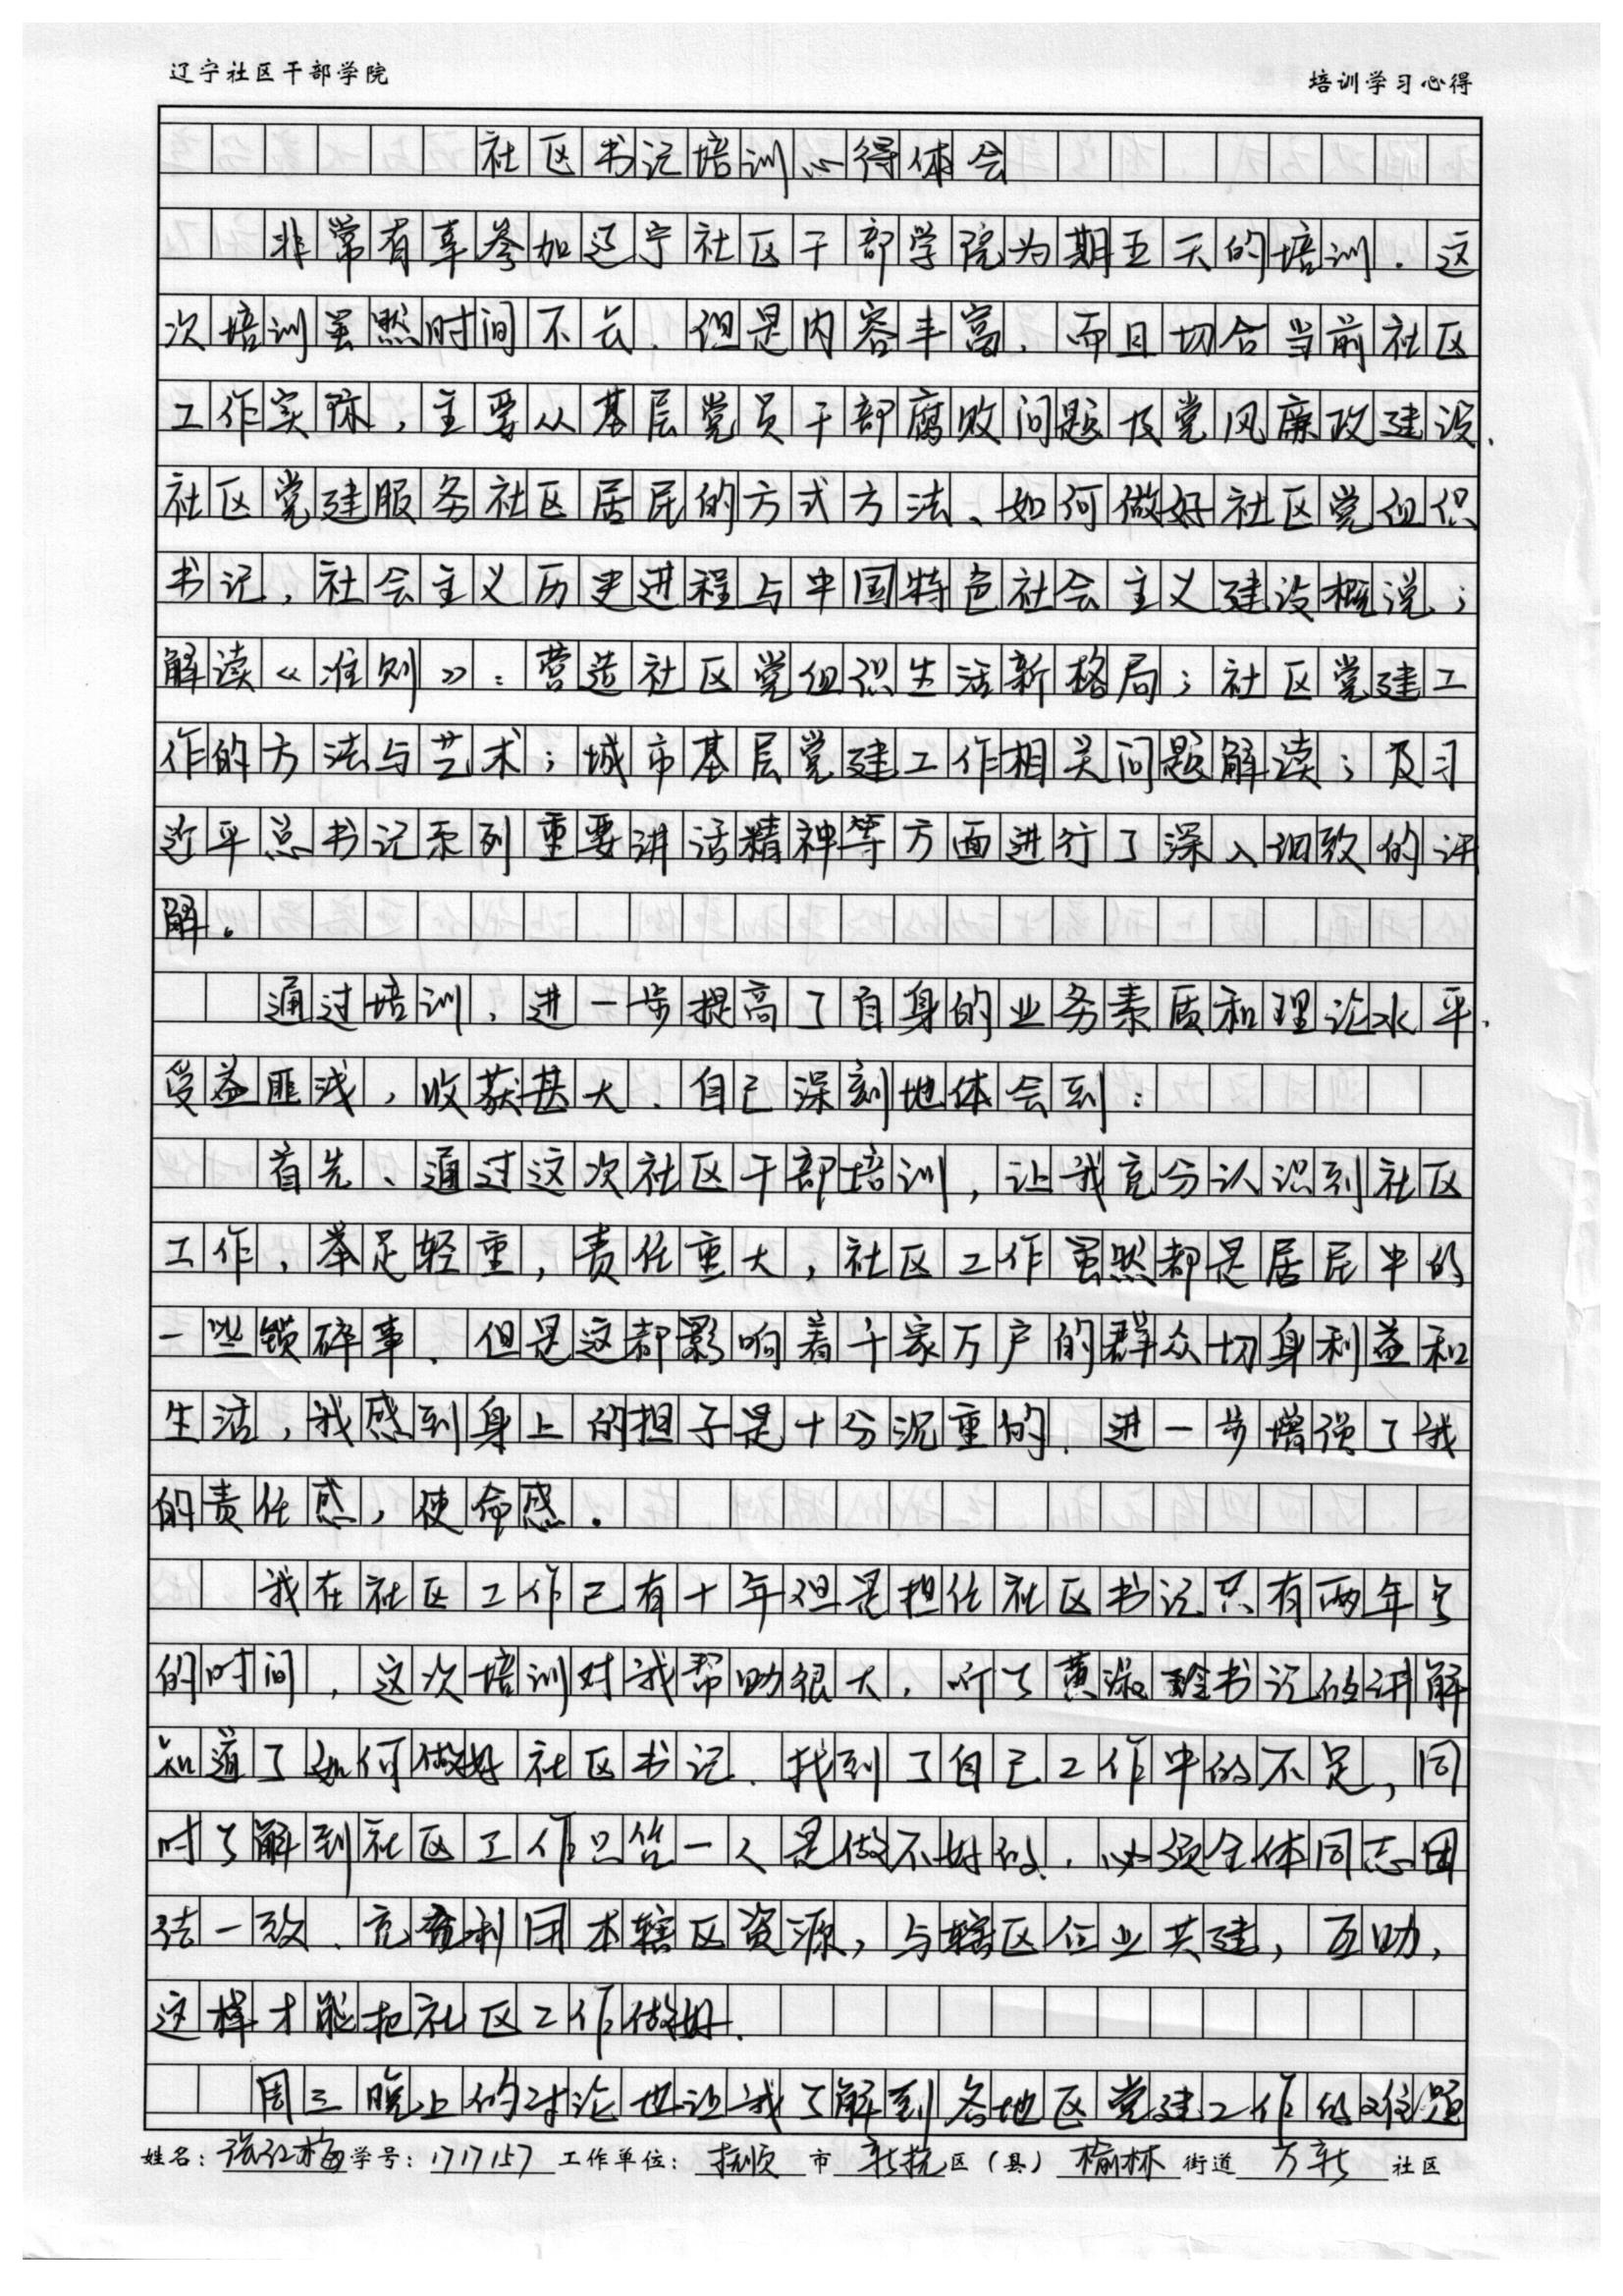 辽宁社区干部学院
培训学习心得
社区书记培训心得体会
非常有幸参加辽宁社区干部学院为期五天的培训.这
次培训虽然时间不长.但是内容丰富,而且切合当前社区
工作实际,主要从基层党员干部腐败问题及党风廉政建设、
社区党建服务社区居民的方式方法、如何做好社区党组织
书记,社会主义历史进程与中国特色社会主义建设概说;
解读《准则》:营造社区党组织生活新格局;社区党建工
作的方法与艺术;城市基层党建工作相关问题解读;及习
近平总书记系列重要讲话精神等方面进行了深入细致的讲
解。
通过培训,进一步提高了自身的业务素质和理论水平、
受益匪浅,收获甚大.自己深刻地体会到:
首先、通过这次社区干部培训,让我充分认识到社区
工作,举足轻重,责任重大,社区工作虽然都是居民中的
一些锁碎事、但是这都影响着千家万户的群众切身利益和
生活,我感到身上的担子是十分沉重的.进一步增强了我
的责任感,使命感.
我在社区工作已有十年但是担任社区书记只有两年多
的时间,这次培训对我帮助很大.听了黄淑玲书记的讲解
知道了如何做好社区书记.找到了自己工作中的不足,同
时了解到社区工作只凭一人是做不好的.必须全体同志团
结一致、充分利用本辖区资源,与辖区企业共建,互助,
这样才能把社区工作做好.
周三晚上的讨论也让我了解到各地区党建工作的难题
姓名:张红梅学号:1717157工作单位:抚顺市新抚区(县)榆林街道万新社区